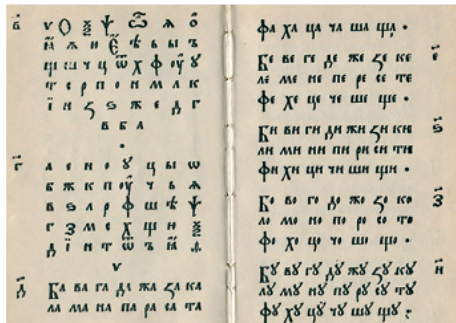 в҃ ѵ Ѻ ѯ ѱ ѽ ѧ о
ꙗ ѫ ю є ѣ ь ы ъ
щ ш ч ц ѿ х ф оу у
т с р п о н м л к
і и ꙁ ѕ ж е д г
в б а
г҃ а е и о у ц ы ѡ
б ж к п оу ч ь ѧ
в ѕ л р ф ш ѣ ѱ
г з м с х щ ю ѯ
д і н т ѿ ъ ꙗ
ѵ
д҃ Ба ва га да жа ꙁа ка
ла ма на па ра са та
фа ха ца ча ша ща .
Бе ве ге де же ꙁе ке е҃
ле ме не пе ре се те
фе хе це че ше ще .
Би ви ги ди жи ꙁи ки ѕ҃
ли ми ни пи ри си ти
фи хи ци чи ши щи .
Бо во го до жо ꙁо ко з҃
ло мо но по ро со то
фо хо цо чо шо що .
Бꙋ вꙋ гꙋ дꙋ жꙋ ꙁꙋ кꙋ и҃
лꙋ мꙋ нꙋ пꙋ рꙋ сꙋ тꙋ
фꙋ хꙋ цꙋ чꙋ шꙋ щꙋ .